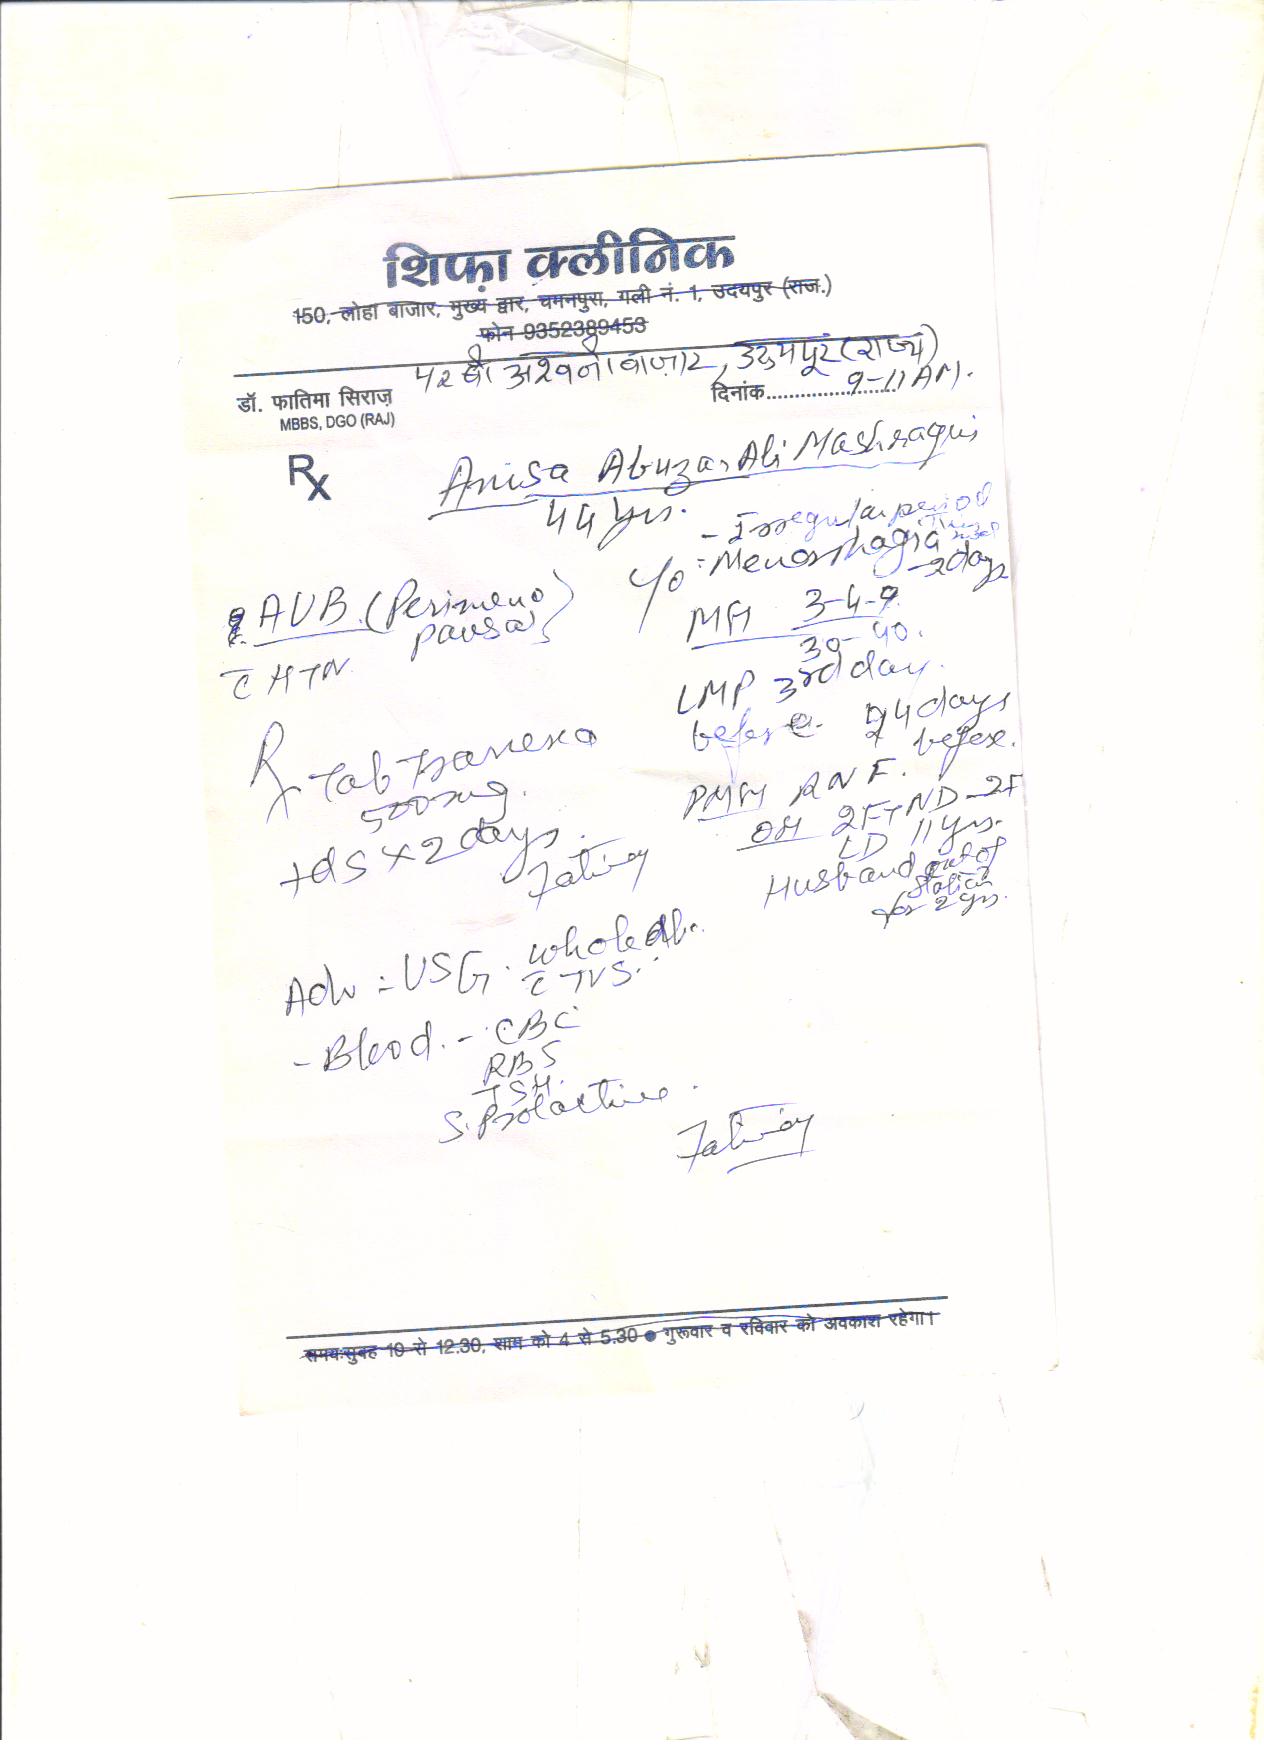 शिफ़ा क्लीनिक
150, लोहा बाजार, मुख्य द्वार, चमनपुरा, गली नं. 1, उदयपुर (राज.)
फोन 9352389453
42 बी अश्वनी बाज़ार, उदयपुर (राज्य)
डॉ. फातिमा सिराज़
दिनांक........................ 9-11 AM.
MBBS, DGO (RAJ)
Rx
Anisa Abuzar Ali Mashraqui
44 yrs.
- Irregular period
Y/o - Menorrhagia
- 2 days
? AUB (Perimeno
pausal)
c̄ HTN
MH 3-4-9
30-40.
LMP 3rd day.
before 24 days
before.
Rx Tab Tranexa
500 mg.
tds x 2 days.
Fatima
PMH RNF.
OH 2FTND - 2F
LD 11 yrs.
Husband out of
station
for 2 yrs.
Adv :- USG. whole Ab.
c̄ TVS.
- Blood. - CBC
RBS
TSH.
S. Prolactine.
Fatima
समय:सुबह 10 से 12.30, शाम को 4 से 5.30 ● गुरूवार व रविवार को अवकाश रहेगा।